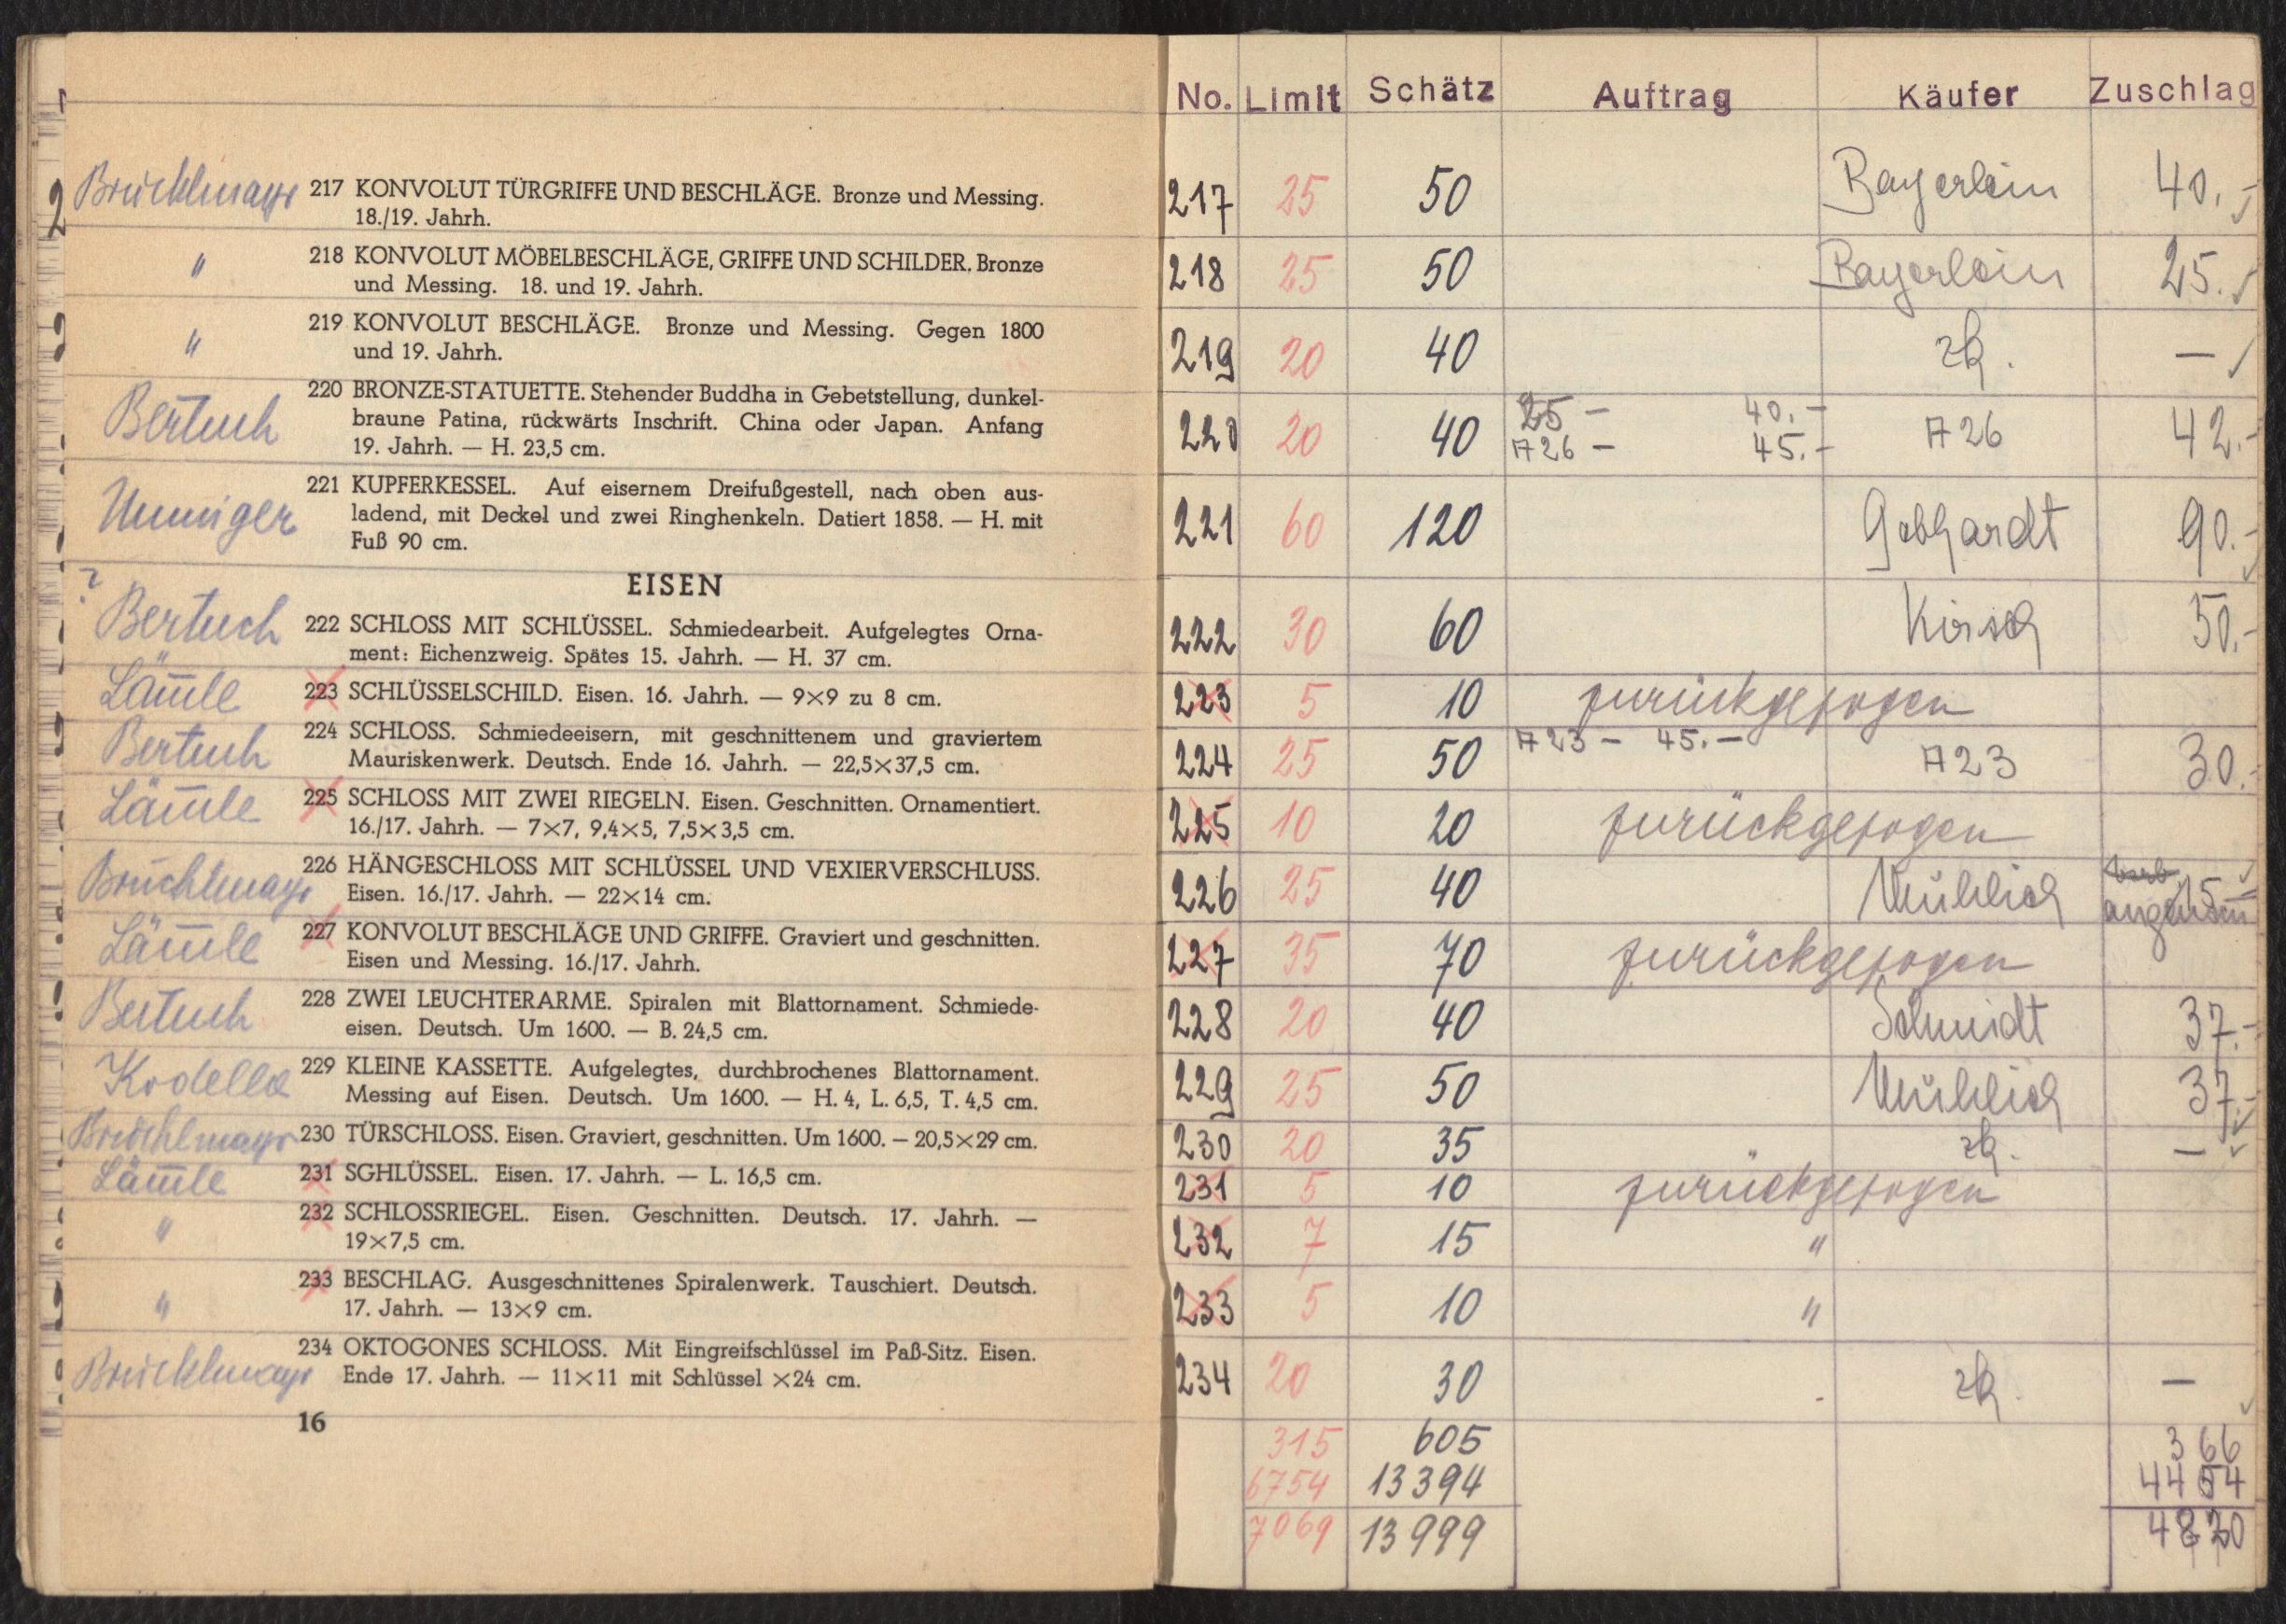 Brüchlmayr 217 KONVOLUT TÜRGRIFFE UND BESCHLÄGE. Bronze und Messing.
18./19. Jahrh.
" 218 KONVOLUT MÖBELBESCHLÄGE, GRIFFE UND SCHILDER. Bronze
und Messing. 18. und 19. Jahrh.
" 219 KONVOLUT BESCHLÄGE. Bronze und Messing. Gegen 1800
und 19. Jahrh.
Bertuch 220 BRONZE-STATUETTE. Stehender Buddha in Gebetstellung, dunkel-
braune Patina, rückwärts Inschrift. China oder Japan. Anfang
19. Jahrh. — H. 23,5 cm.
221 KUPFERKESSEL. Auf eisernem Dreifußgestell, nach oben aus-
ladend, mit Deckel und zwei Ringhenkeln. Datiert 1858. — H. mit
Fuß 90 cm.
EISEN
? Bertuch 222 SCHLOSS MIT SCHLÜSSEL. Schmiedearbeit. Aufgelegtes Orna-
ment: Eichenzweig. Spätes 15. Jahrh. — H. 37 cm.
Läm̅le 223 SCHLÜSSELSCHILD. Eisen. 16. Jahrh. — 9×9 zu 8 cm.
Bertuch 224 SCHLOSS. Schmiedeeisern, mit geschnittenem und graviertem
Mauriskenwerk. Deutsch. Ende 16. Jahrh. — 22,5×37,5 cm.
Läm̅le 225 SCHLOSS MIT ZWEI RIEGELN. Eisen. Geschnitten. Ornamentiert.
16./17. Jahrh. — 7×7, 9,4×5, 7,5×3,5 cm.
Brüchlmayr 226 HÄNGESCHLOSS MIT SCHLÜSSEL UND VEXIERVERSCHLUSS.
Eisen. 16./17. Jahrh. — 22×14 cm.
Läm̅le 227 KONVOLUT BESCHLÄGE UND GRIFFE. Graviert und geschnitten.
Eisen und Messing. 16./17. Jahrh.
Bertuch 228 ZWEI LEUCHTERARME. Spiralen mit Blattornament. Schmiede-
eisen. Deutsch. Um 1600. — B. 24,5 cm.
Kodella 229 KLEINE KASSETTE. Aufgelegtes, durchbrochenes Blattornament.
Messing auf Eisen. Deutsch. Um 1600. — H. 4, L. 6,5, T. 4,5 cm.
Brüchlmayr 230 TÜRSCHLOSS. Eisen. Graviert, geschnitten. Um 1600. — 20,5×29 cm.
Läm̅le 231 SGHLÜSSEL. Eisen. 17. Jahrh. — L. 16,5 cm.
" 232 SCHLOSSRIEGEL. Eisen. Geschnitten. Deutsch. 17. Jahrh. —
19×7,5 cm.
" 233 BESCHLAG. Ausgeschnittenes Spiralenwerk. Tauschiert. Deutsch.
17. Jahrh. — 13×9 cm.
Brüchlmayr 234 OKTOGONES SCHLOSS. Mit Eingreifschlüssel im Paß-Sitz. Eisen.
Ende 17. Jahrh. — 11×11 mit Schlüssel ×24 cm.
16
No. Limit Schätz Auftrag Käufer Zuschlag
217 25 50 Bayerlein 40.-
218 25 50 Bayerlein 25.-
219 20 40 zk. —
220 20 40 25 — 40.- A 26 42.-
A 26 — 45.-
221 60 120 Gebhardt 90.-
222 30 60 Kirsch 50.-
223 5 10 zurückgezogen
224 25 50 A 23 — 45.— A 23 30.-
225 10 20 zurückgezogen
226 25 40 Mühlich 15
227 35 70 zurückgezogen
228 20 40 Schmidt 37.-
229 25 50 Mühlich 37.-
230 20 35 zk. —
231 5 10 zurückgezogen
232 7 15 "
233 5 10 "
234 20 30 zk. —
315 605 366
6754 13394 4454
7069 13999 4820